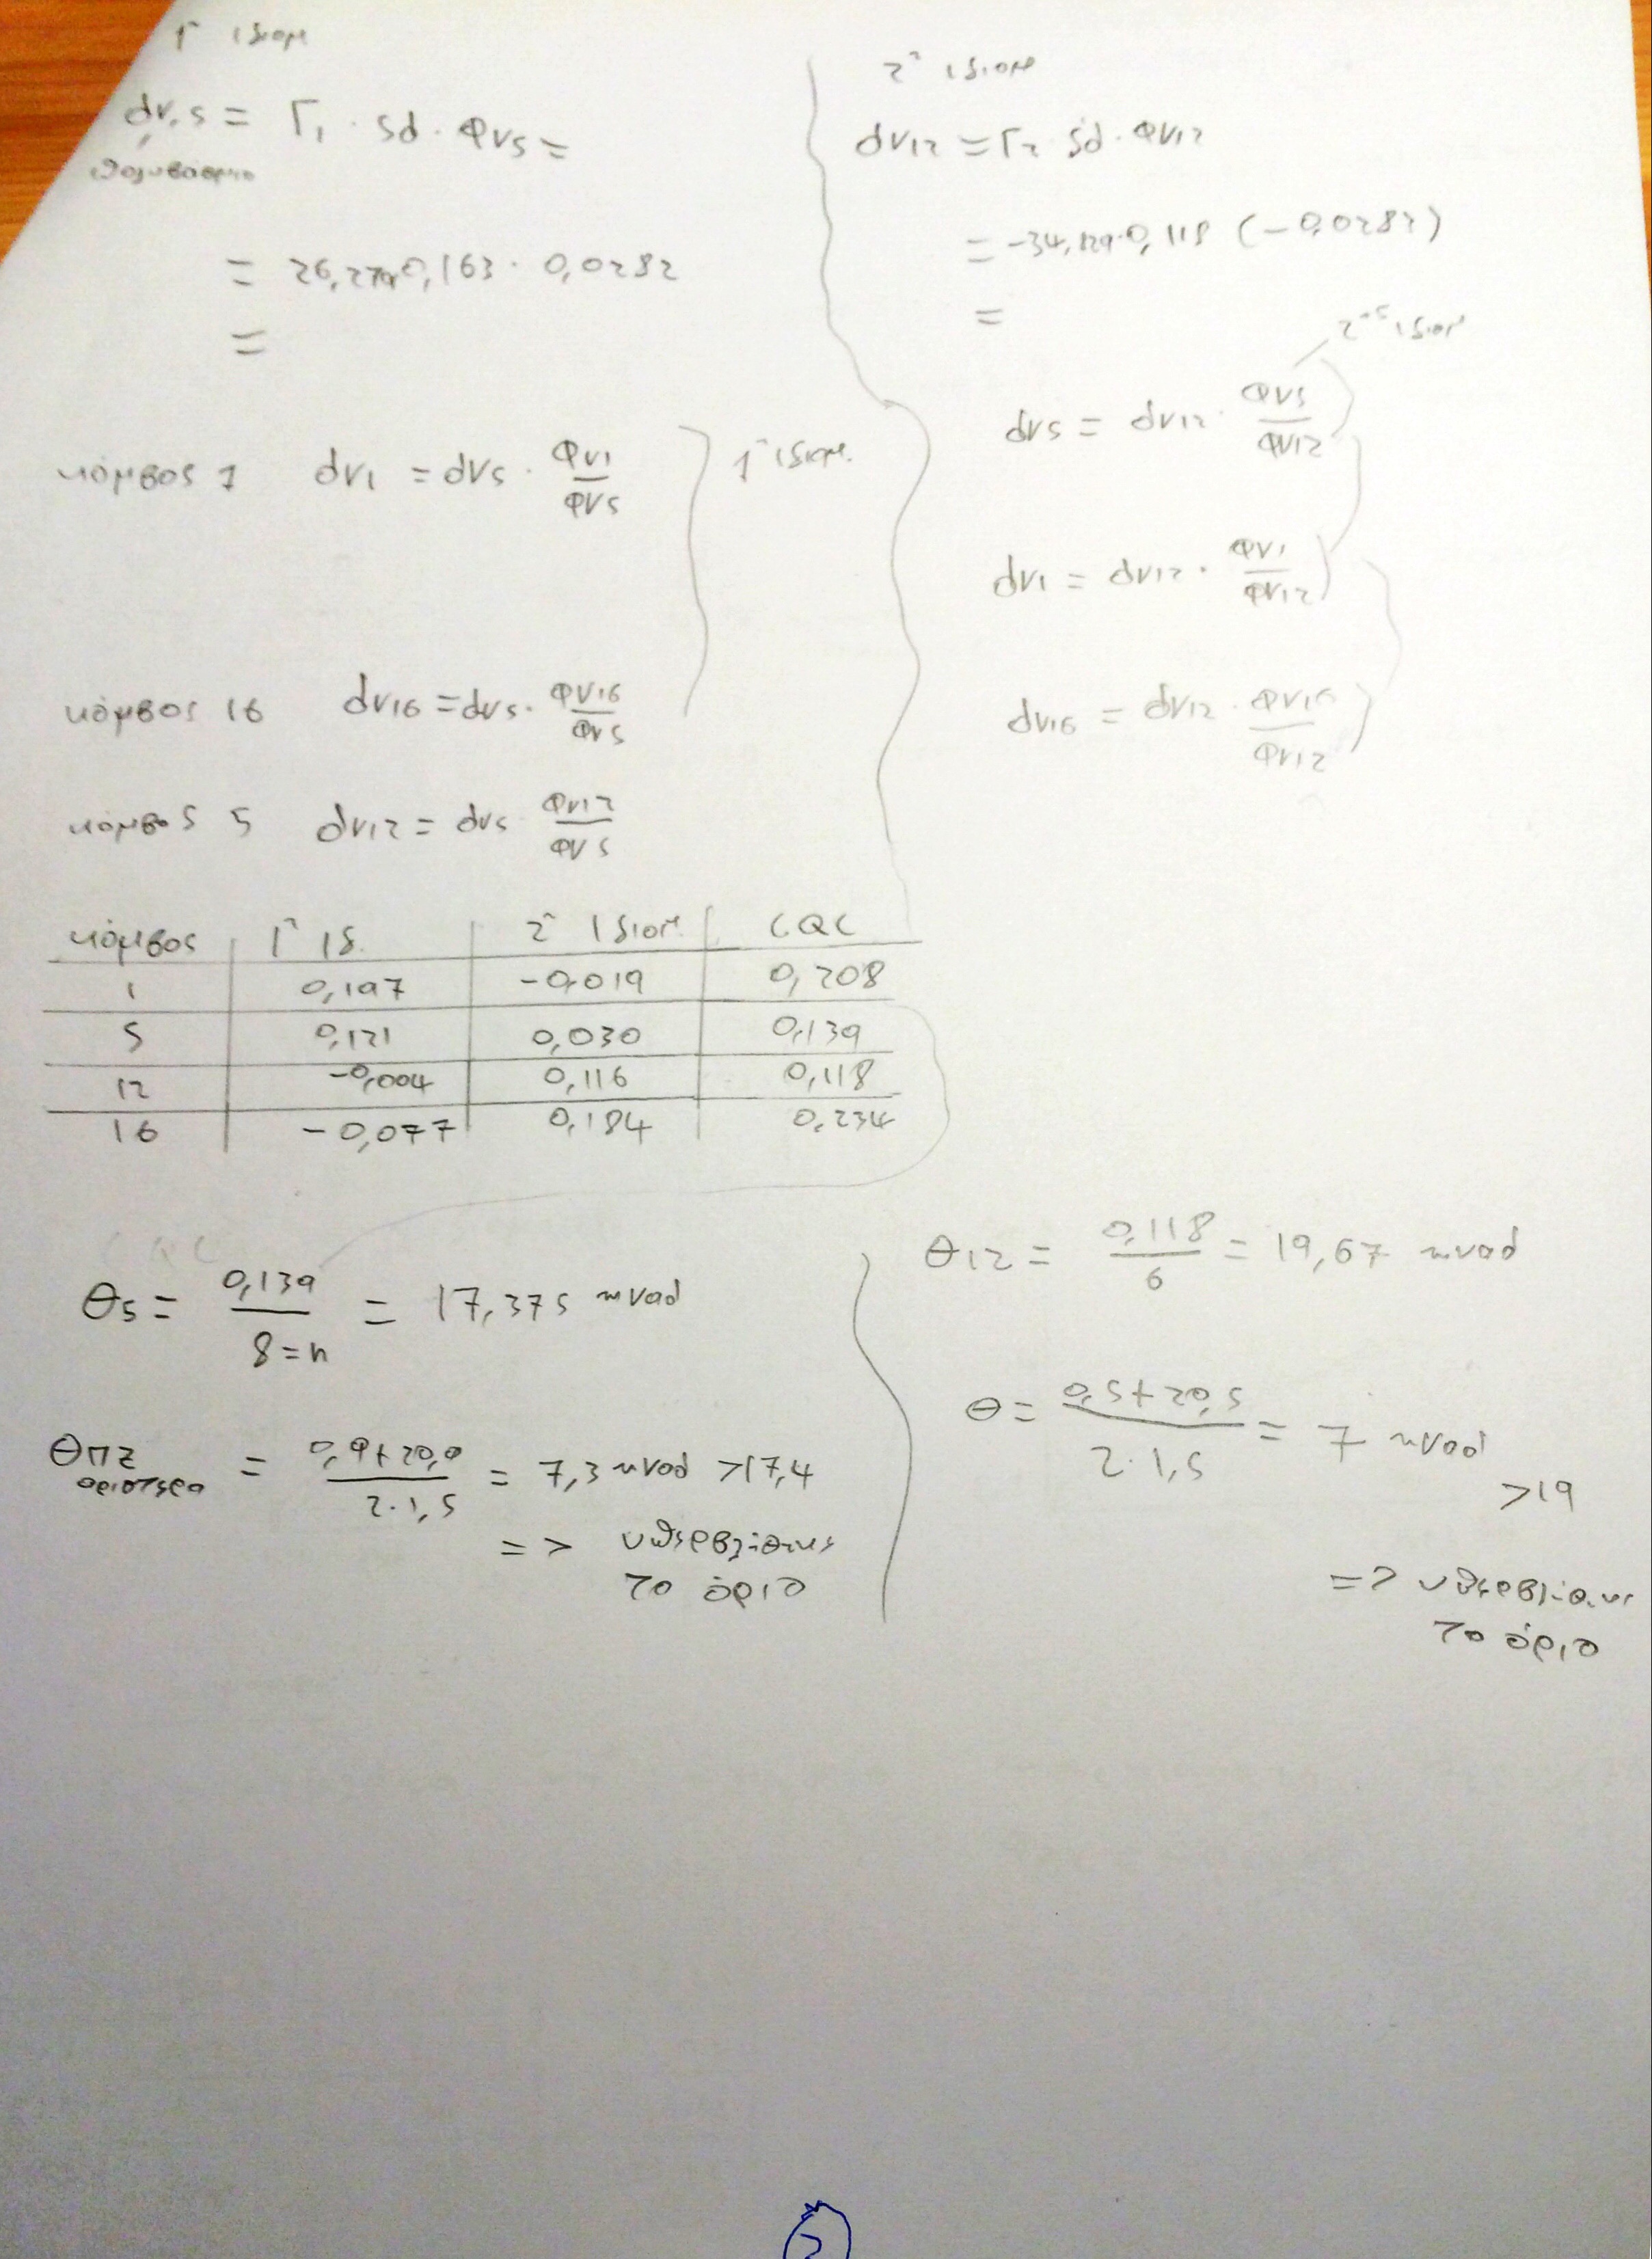 1η ιδιομ
dv,5 = Γ1 · Sd · Φv5 =
= 26,274·0,163 · 0,0282
=
κόμβος 1 dv1 = dv5 · Φv1/Φv5
1η ιδιομ.
κόμβος 16 dv16 = dv5 · Φv16/Φv5
κόμβος 5 dv12 = dv5 Φv12/Φv5
2η ιδιομ
dv12 = Γ2 · Sd · Φv12
= -34,129·0,118 (-0,0282)
=
2ης ιδιομ
dv5 = dv12 · Φv5/Φv12
dv1 = dv12 · Φv1/Φv12
dv16 = dv12 · Φv16/Φv12
κόμβος 1η ιδ. 2η ιδιομ. CQC
1 0,197 -0,019 0,208
5 0,121 0,030 0,139
12 -0,004 0,116 0,118
16 -0,077 0,184 0,234
CQC
θ5 = 0,139/8=h = 17,375 mrad
θπζ αριστερα = 0,9+20,0/2·1,5 = 7,3 mrad >17,4
=> υπερβαίνει
το όριο
θ12 = 0,118/6 = 19,67 mrad
θ = 0,5+20,5/2·1,5 = 7 mrad
>19
=> υπερβαίνει
το όριο